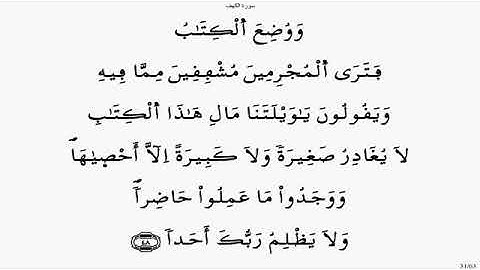 سورة الكهف
وَوُضِعَ اَ۬لْكِتَٰبُ
فَتَرَى اَ۬لْمُجْرِمِينَ مُشْفِقِينَ مِمَّا فِيهِ
وَيَقُولُونَ يَٰوَيْلَتَنَا مَالِ هَٰذَا اَ۬لْكِتَٰبِ
لَا يُغَادِرُ صَغِيرَةً وَلَا كَبِيرَةً اِلَّآ أَحْص۪يٰهَاۖ
وَوَجَدُواْ مَا عَمِلُواْ حَاضِراٗۖ
وَلَا يَظْلِمُ رَبُّكَ أَحَداٗ ٤٨
31/63